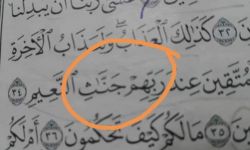 عَسَىٰ رَبُّنَا أَن يُبْدِلَنَا
٣٢ كَذَٰلِكَ ٱلْعَذَابُ وَلَعَذَابُ ٱلْأَخِرَةِ
مُتَّقِينَ عِندَ رَبِّهِمْ جَنَّٰتِ ٱلنَّعِيمِ ٣٤
٣٥ مَا لَكُمْ كَيْفَ تَحْكُمُونَ ٣٦ أَمْ لَكُمْ